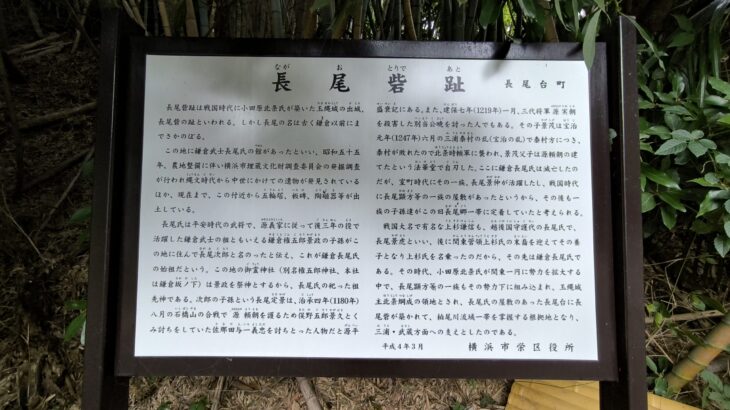 長尾砦趾 長尾台町
ながおとりであと
長尾砦趾は戦国時代に小田原北条氏が築いた玉縄城の出城、
長尾砦の趾といわれる。しかし長尾の名は古く鎌倉以前にま
でさかのぼる。
この地に鎌倉武士長尾氏の館があったといい、昭和五十五
年、農地整備に伴い横浜市埋蔵文化財調査委員会の発掘調査
が行われ縄文時代から中世にかけての遺物が発見されている
ほか、現在まで、この付近から五輪塔、板碑、陶磁器等が出
土している。
長尾氏は平安時代の武将で、源義家に従って後三年の役で
活躍した鎌倉武士の祖ともいえる鎌倉権五郎景政の子孫がこ
の地に住んで長尾次郎と名のったと伝え、これが鎌倉長尾氏
の始祖だという。この地の御霊神社(別名権五郎神社、本社
は鎌倉坂ノ下)は景政を祭神とするから、長尾氏の祀った祖
先神である。次郎の子孫という長尾定景は、治承四年(1180年)
八月の石橋山の合戦で、源頼朝を護るため俣野五郎景久とく
み討ちをしていた佐那田与一義忠を討ちとった人物だと源平
盛衰記にある。また、建保七年(1219年)一月、三代将軍源実朝
を殺害した別当公暁を討った人でもある。その子景茂は宝治
元年(1247年)六月の三浦泰村の乱(宝治の乱)で泰村方につき、
泰村が敗れたので北条時頼軍に襲われ、景茂父子は源頼朝の建
てたという法華堂で自刃した。ここに鎌倉長尾氏は滅亡したの
だが、室町時代にその一族、長尾景仲が活躍したし、戦国時代
に長尾顕方等の一族の屋敷があったというから、その後も一
族の子孫達がこの旧長尾郷一帯に定着していたと考えられる。
戦国大名で有名な上杉謙信も、越後国守護代の長尾氏で、
長尾景虎といい、後に関東管領上杉氏の末裔を迎えてその養
子となり上杉氏を名乗ったのだから、その先は鎌倉長尾氏で
ある。その時代、小田原北条氏が関東一円に勢力を拡大する
中で、長尾顕方等の一族もその勢力下に組み込まれ、玉縄城
主北条綱成の領地とされ、長尾氏の屋敷のあった長尾台に長
尾砦が築かれて、柏尾川流域一帯を掌握する根拠地となり、
三浦・武蔵方面への支えとしたのである。
平成4年3月 横浜市栄区役所